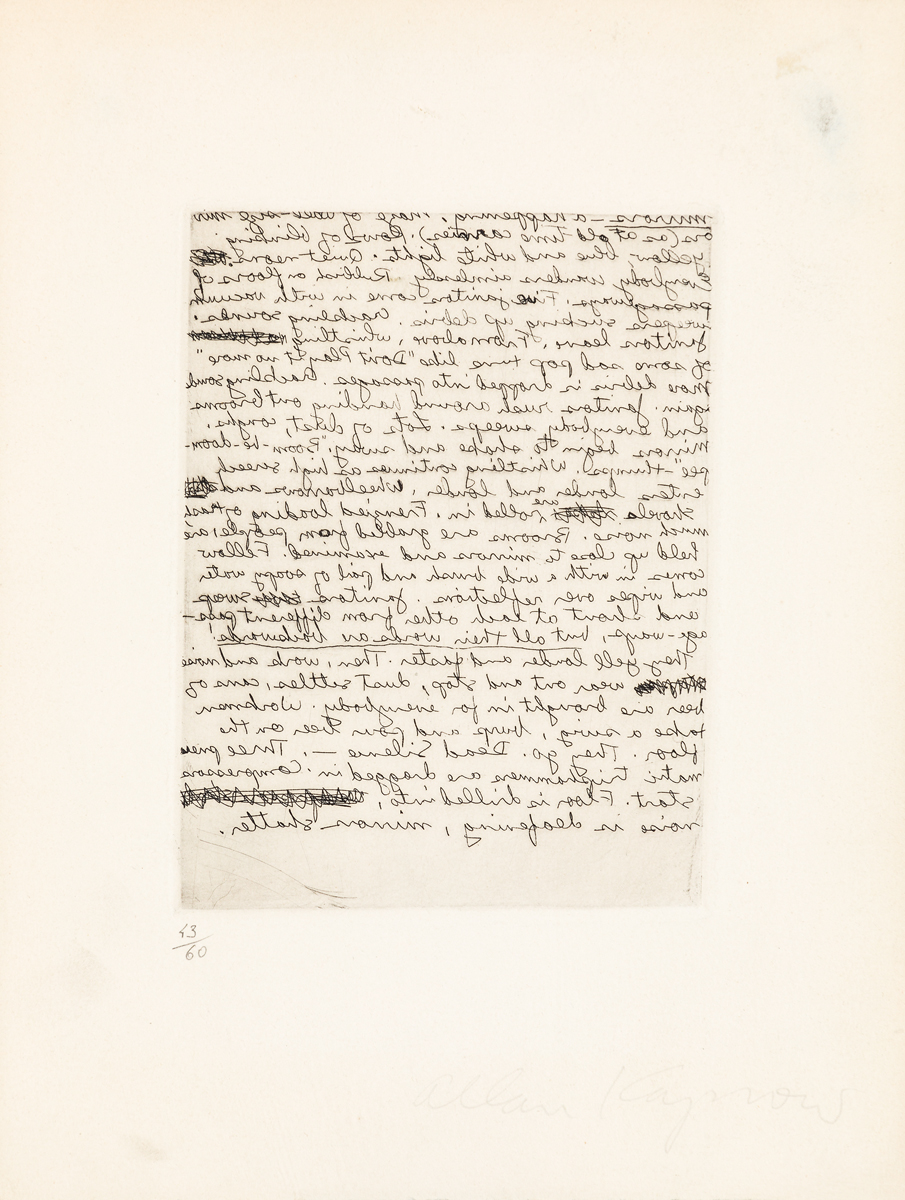 mirrors – a happening. Maze of wall-size mirr
ors (as at old time carnies). Rows of blinking
yellow blue and white lights. Quiet neons.
Everybody wanders aimlessly. Rubbish on floors of
passageways. Five janitors come in with vacuum
sweepers sucking up debris. Crackling sounds.
Janitors leave. From above, whistling
of some sad pop tune like "Don't Play It no more"
More debris is dropped into passages. Crackling sound
again. Janitors rush around handing out brooms
and everybody sweeps. Lots of dust, coughs.
Mirrors begin to shake and sway. "Boom-be-doom-
pee"-thumps. Whistling continues as high screech
enters louder and louder. Wheelbarrows and
shovels are rolled in. Frenzied loading of trash
much noise. Brooms are grabbed from people, are
held up close to mirrors and examined. Fellow
comes in with a wide brush and pail of soapy water
and wipes over reflections. Janitors sweep
and shout at each other from different pass-
age-ways, but all their words are backwards.
They yell louder and faster. Then, work and noise
wear out and stop, dust settles, cans of
beer are brought in for everybody. Workmen
take a swig, burp and pour beer on the
floor. They go. Dead Silence –. Three pneu
matic triphammers are dragged in. Compressors
start. Floor is drilled into,
noise is deafening, mirrors shatter.
43
60
Allan Kaprow